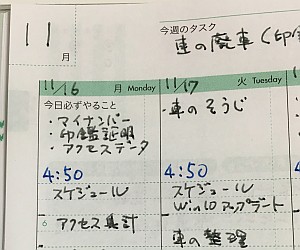 11月
今週のタスク
車の廃車(印鑑
11/16 月 Monday
今日必ずやること
・マイナンバー
・印鑑証明
・アクセスデータ
4:50
スケジュール
6 アクセス集計
11/17 火 Tuesday
・車のそうじ
4:50
スケジュール
Win10アップデート
車の整理